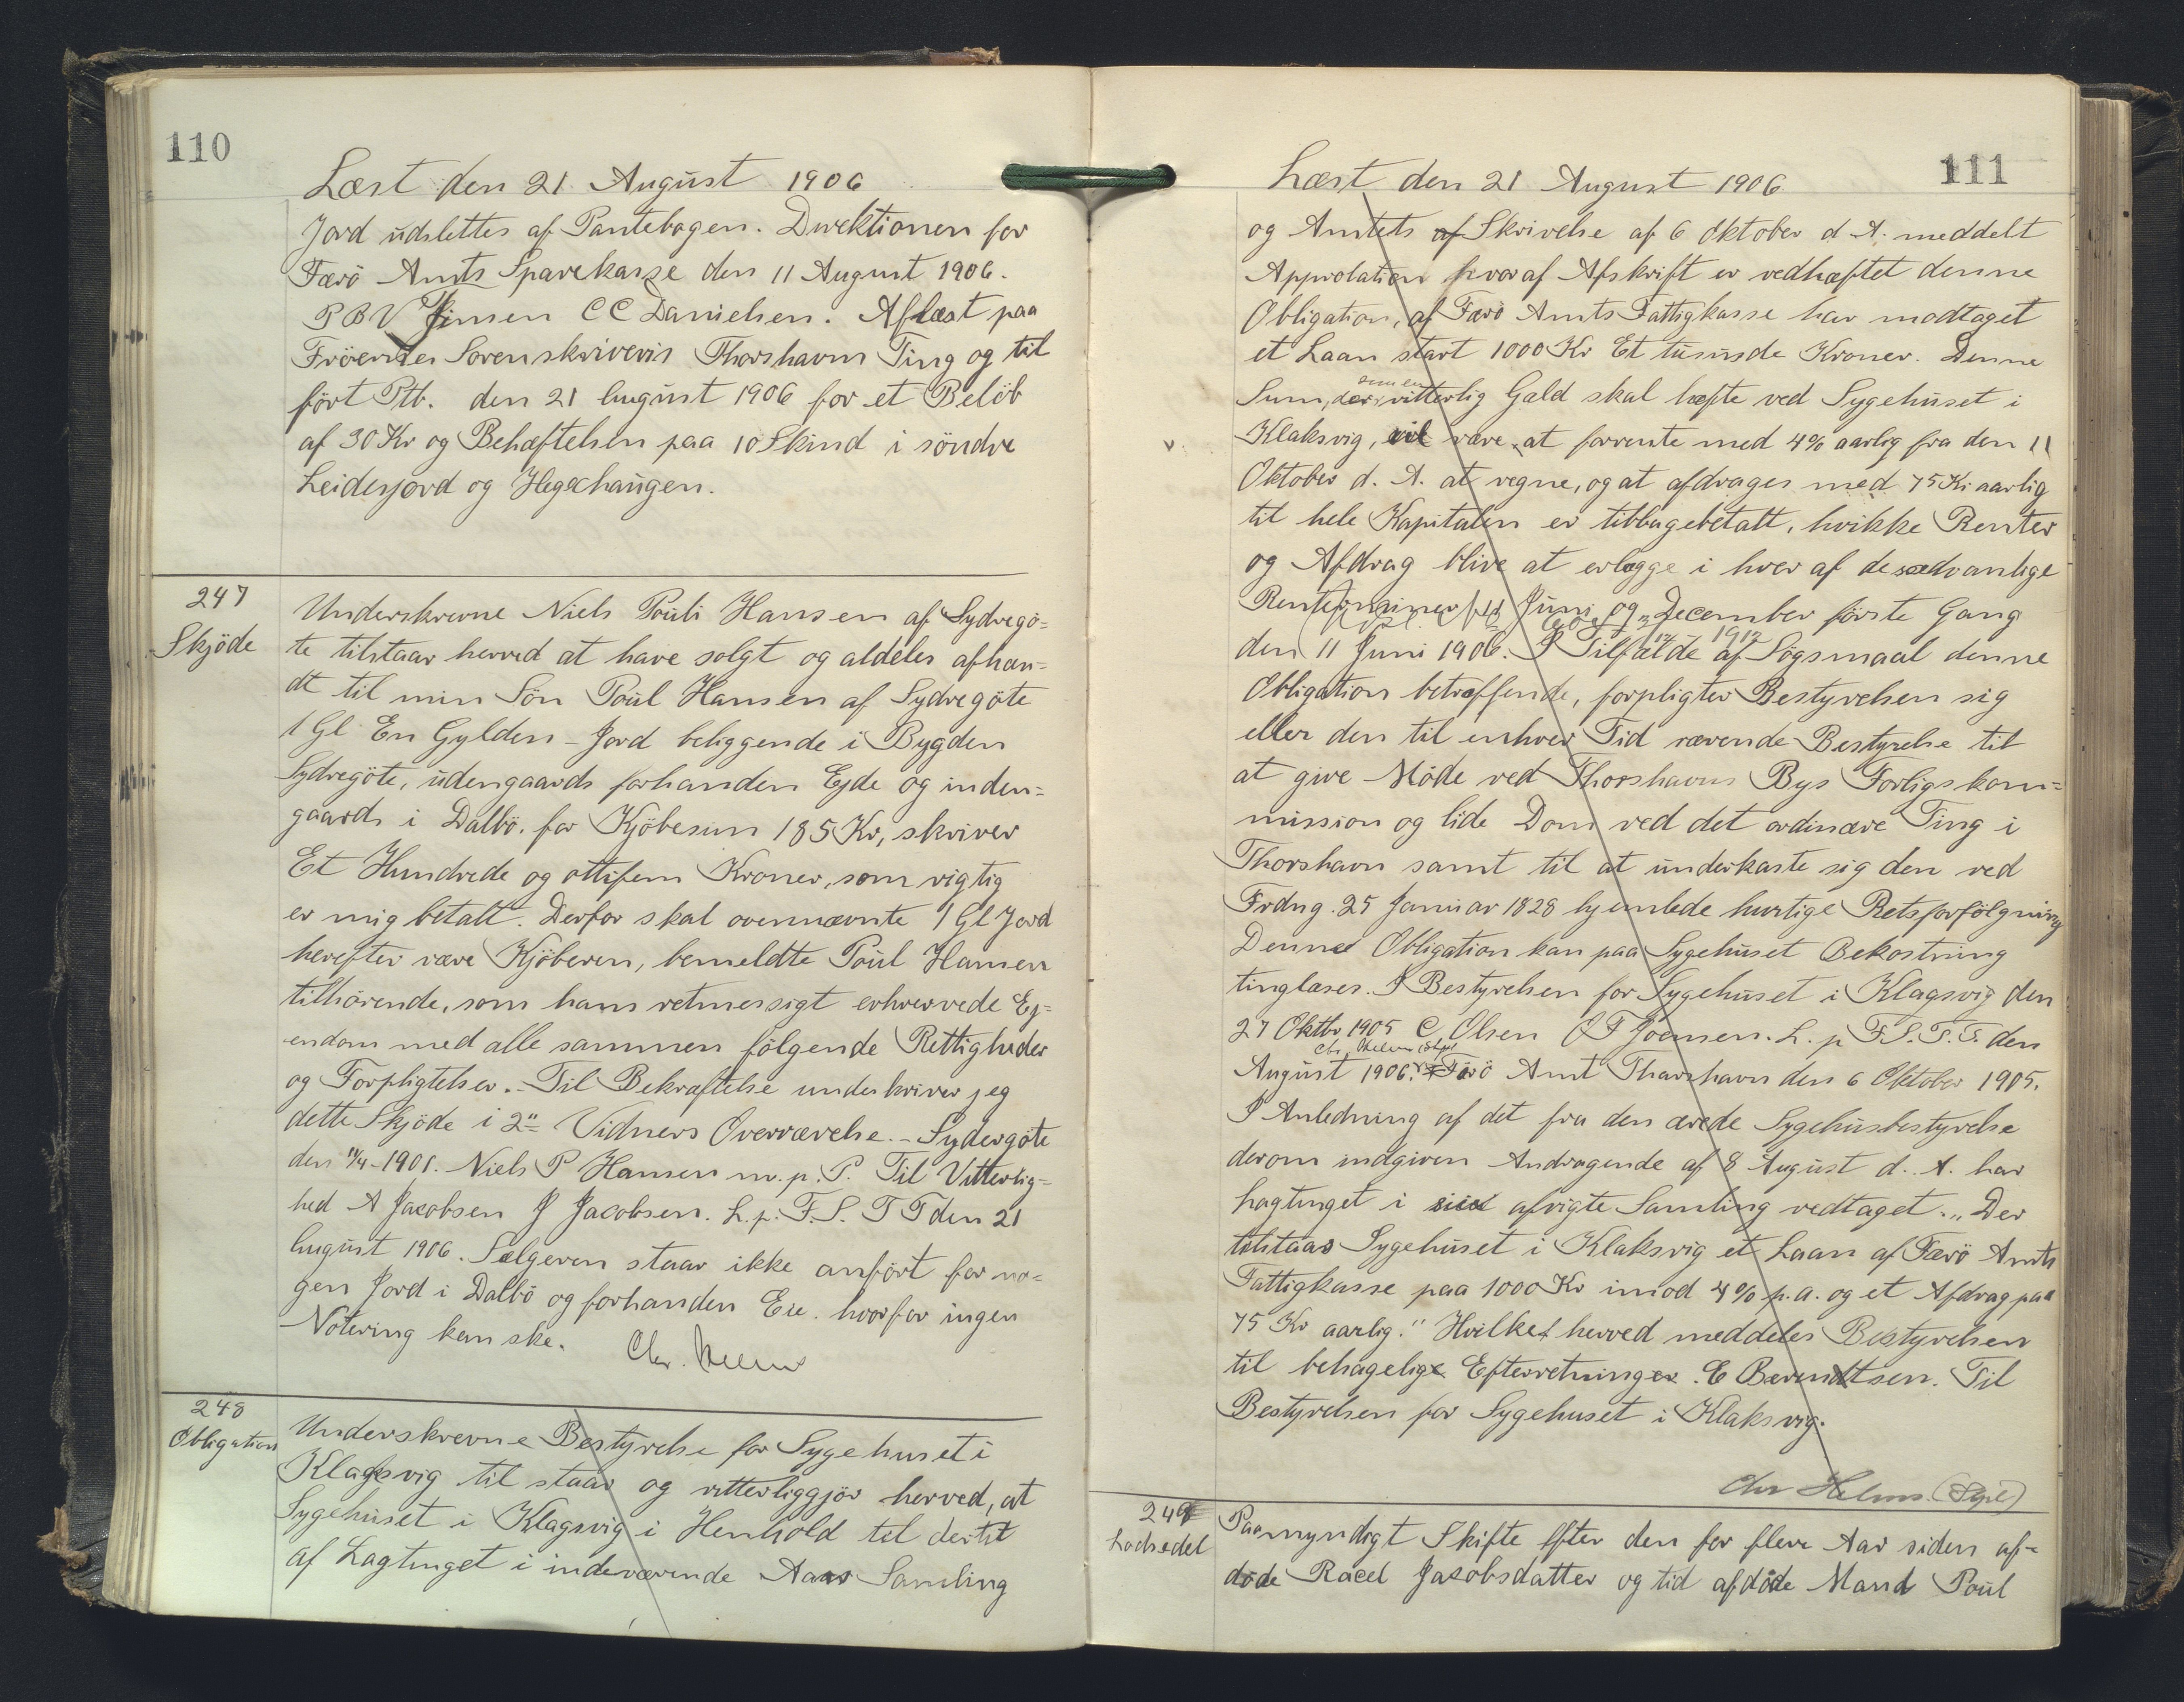 110
Læst den 21 August 1906
Jord udslettes af Pantebogen. Direktionen for
Færö Amts Sparekasse den 11 August 1906.
P B V Jensen C C Danielsen. Aflæst paa
Fröernes Sorenskriveris Thorshavns Ting og til
fört Ptb. den 21 August 1906 for et Belöb
af 30 Kr og Behæftelsen paa 10 Skind i söndre
Leidesjord og Hegachaugen.
247
Skjöde
Underskrevne Niels Pouli Hansen af Sydregö=
te tilstaar herved at have solgt og aldeles afhæn=
dt til min Sön Poul Hansen af Sydregöte
1 Gl En Gylden - Jord beliggende i Bygden
Sydregöte, udengaards forhanden Ejde og inden=
gaards i Dalbö. for Kjöbesum 185 Kr, skriver
Et Hundrede og ottifem Kroner, som rigtig
er mig betalt. Derfor skal ovennævnte 1 Gl Jord
herefter være Kjöberen, bemeldte Poul Hansen
tilhörende, som hans retmessigt erhvervede Ej=
endom med alle sammen fölgende Rettigheder
og Forpligtelser. - Til Bekræftelse underskriver jeg
dette Skjöde i 2" Vidners Overværelse. - Sydergöte
den 11/4-1901. Niels P Hansen m. p. P. Til Vitterlig=
hed A Jacobsen J Jacobsen. L. p. F. S. T T den 21
August 1906. Sælgeren staar ikke anfört for no=
gen Jord i Dalbö og forhanden Eie. hvorfor ingen
Notering kan ske. Chr. Helms
248
Obligation
Underskrevne Bestyrelse for Sygehuset i
Klagsvig til staar og vitterliggjör herved, at
Sygehuset i Klagsvig i Henhold til dertil
af Lagtinget i indeværende Aars Samling
111
Læst den 21 August 1906
og Amtets af Skrivelse af 6 Oktober d A. meddelt
Approbation hvoraf Afskrift er vedhæftet denne
Obligation, af Færö Amts Fattigkasse har modtaget
et Laan stort 1000 Kr Et tusinde Kroner. Denne
som en
Sum, der vitterlig Gæld skal hæfte ved Sygehuset i
Klaksvig, vil være at forrente med 4% aarlig fra den 11
Oktober d. A. at regne, og at afdrages med 75 Kr aarlig
til hele Kapitalen er tilbagebetalt, hvilke Renter
og Afdrag blive at erlægge i hver af de sædvanlige
Renteterminer 11 Juni og " December förste Gang
den 11 Juni 1906. I Tilfælde af Sögsmaal denne
Obligation betræffende, forpligter Bestyrelsen sig
eller den til enhver Tid værende Bestyrelse til
at give Möde ved Thorshavns Bys Forligskom=
mission og lide Dom ved det ordinære Ting i
Thorshavn samt til at underkaste sig den ved
Frdng. 25 Januar 1828 hjemlede hurtige Retsforfölgning
Denne Obligation kan paa Sygehuset Bekostning
tinglæses. I Bestyrelsen for Sygehuset i Klagsvig den
27 Oktbr 1905 C Olsen O F Joensen. L. p F. S. T. T. den
Chr. Helms
August 1906. Færö Amt Thorshavn den 6 Oktober 1905.
I Anledning af det fra den ærede Sygehusbestyrelse
derom indgiven Andragende af 8 August d. A. har
Lagtinget i sin afvigte Samling vedtaget. „ Der
tilstaas Sygehuset i Klaksvig et Laan af Færö Amts
Fattigkasse paa 1000 Kr imod 4% p. a. og et Afdrag paa
75 Kr aarlig." Hvilket herved meddeles Bestyrelsen
til behagelige Efterretninger. E Berendtsen. Til
Bestyrelsen for Sygehuset i Klaksvig.
Chr Helms.
249
Lodsedel
Paa myndigt Skifte efter den for flere Aar siden af=
döde Racel Jacobsdatter og tid afdöde Mand Poul